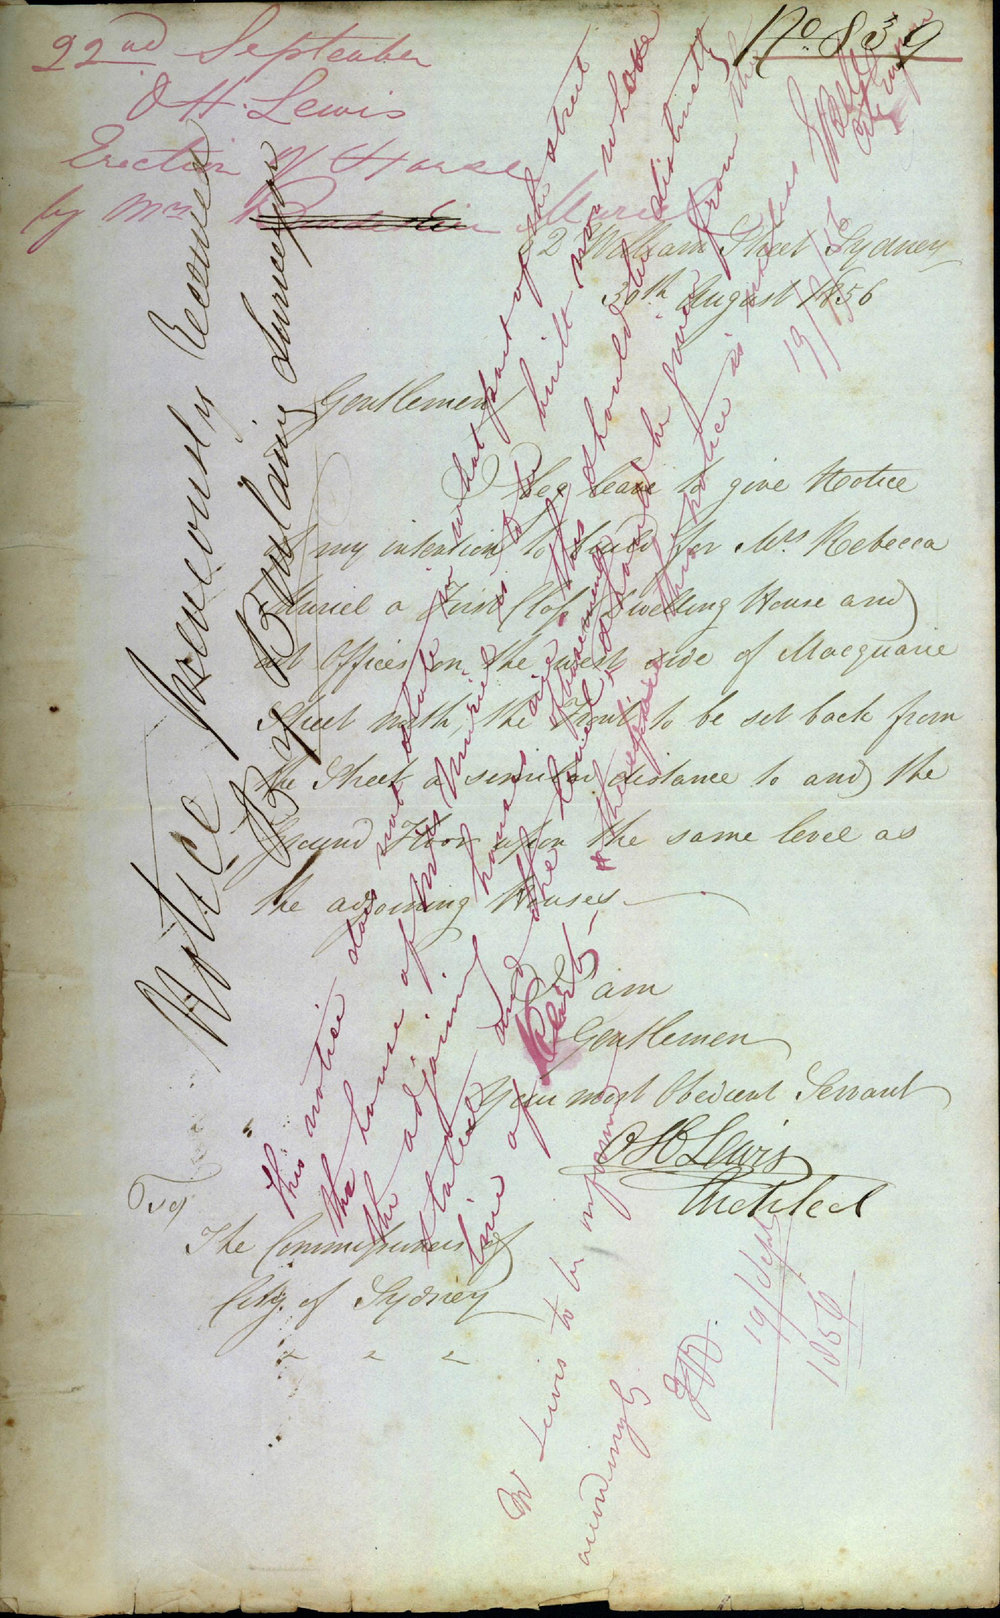 No. 839
22nd September
O H. Lewis
Erection of House
by Mrs Muriel
52 William Street Sydney
30th August 1856
Gentlemen
I beg leave to give Notice
of my intention to build for Mrs Rebecca
Muriel a First Class Dwelling House and
out Offices on the west side of Macquarie
Street north, the Front to be set back from
the Street a similar distance to and the
Ground Floor upon the same level as
the adjoining Houses.
I am
Gentlemen
Your most Obedient Servant
O H Lewis
Architect
To
The Commissioners of
City of Sydney
Notice Erroneously Received
By Building Surveyor
This notice does not state in what part of the street
the house of Mrs Muriel is to be built nor whose
the adjoining houses are. This should be distinctly
stated and the level should be given from the
line of Kerb - & therefore this notice is useless
City Engineer
19/9/56
Mr Lewis to be informed
accordingly
19/Sept
1856